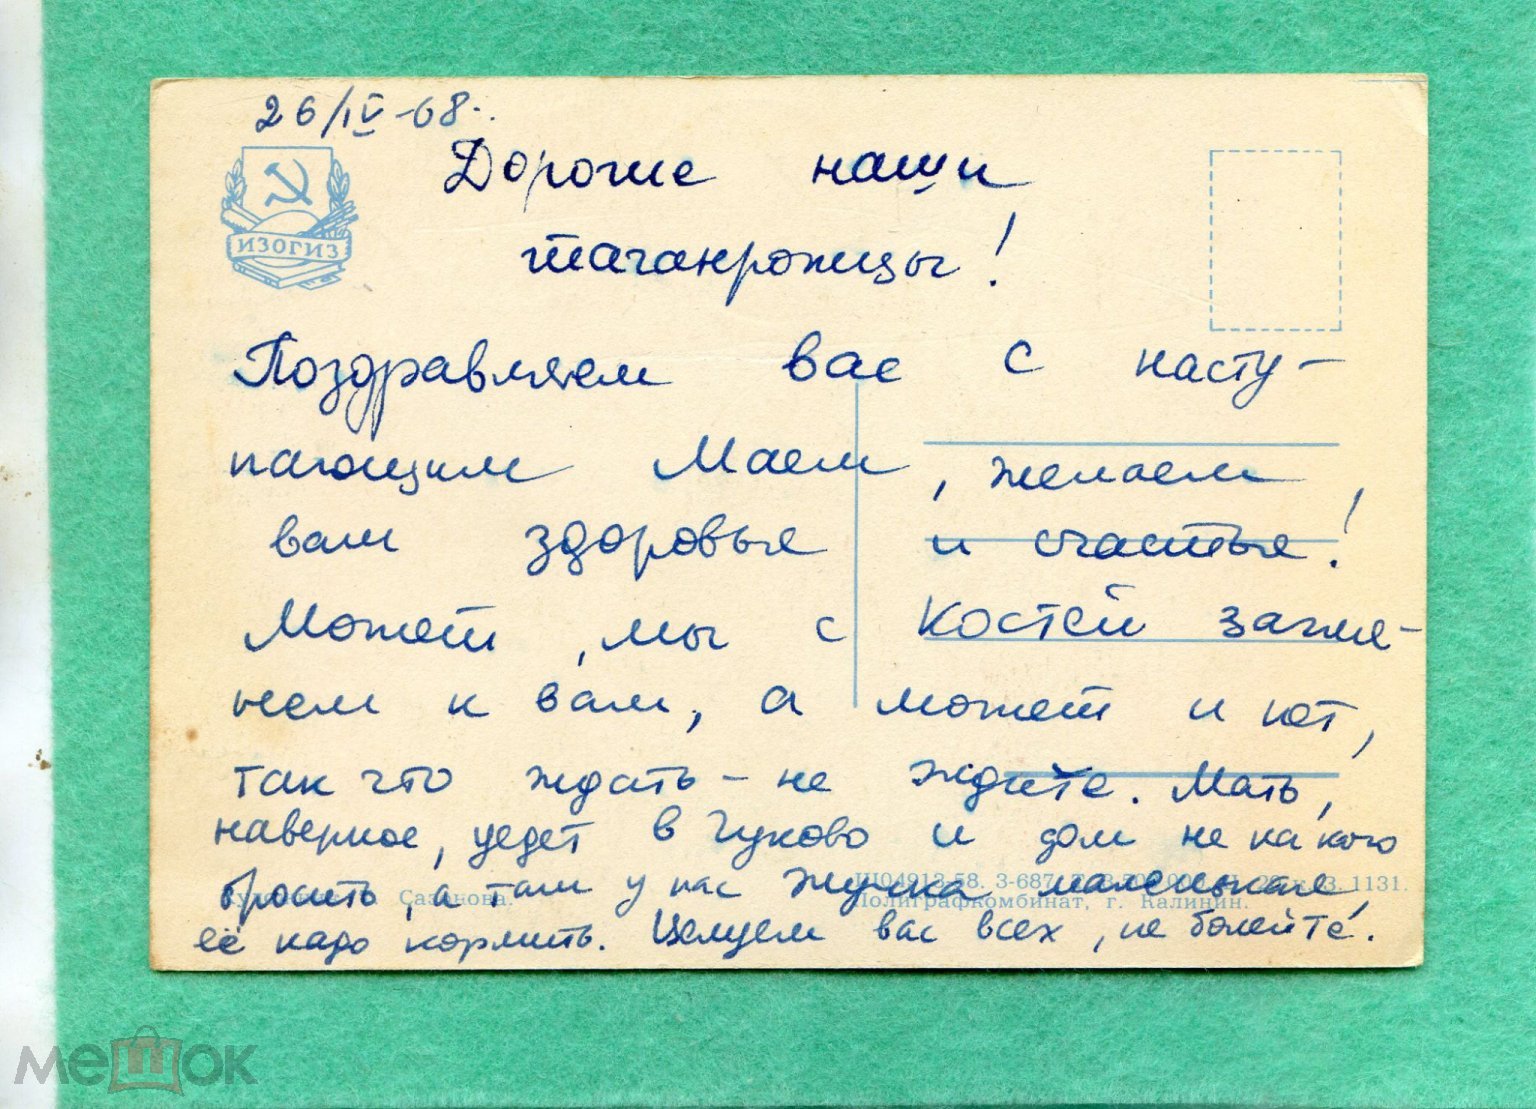 26/IV-68.
Дорогие наши
таганрожцы!
ИЗОГИЗ
Поздравляем вас с насту-
пающим Маем, желаем
вам здоровья и счастья!
Может, мы с Костей загля-
нем к вам, а может и нет,
так что ждать - не ждите. Мать,
наверное, уедет в Чуково и дом не на кого
бросить, а там у нас Жучка маленькая,
Сазонова.
Ш04913-58. 3-687. 1131.
Полиграфкомбинат, г. Калинин.
её надо кормить. Целуем вас всех, не болейте!
мешок